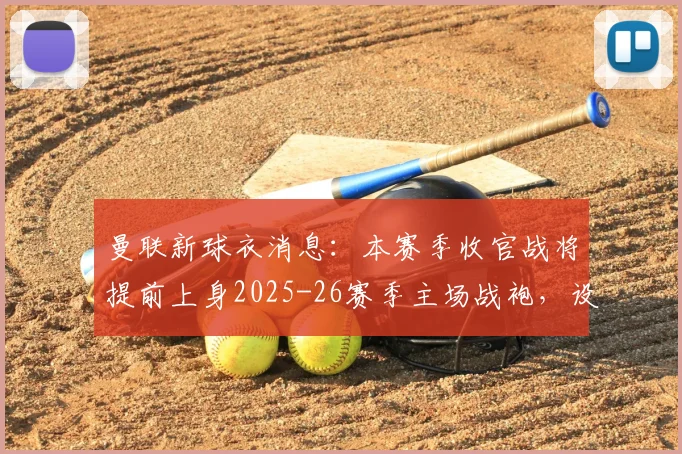 曼联新球衣消息：本赛季收官战将
提前上身2025-26赛季主场战袍，设